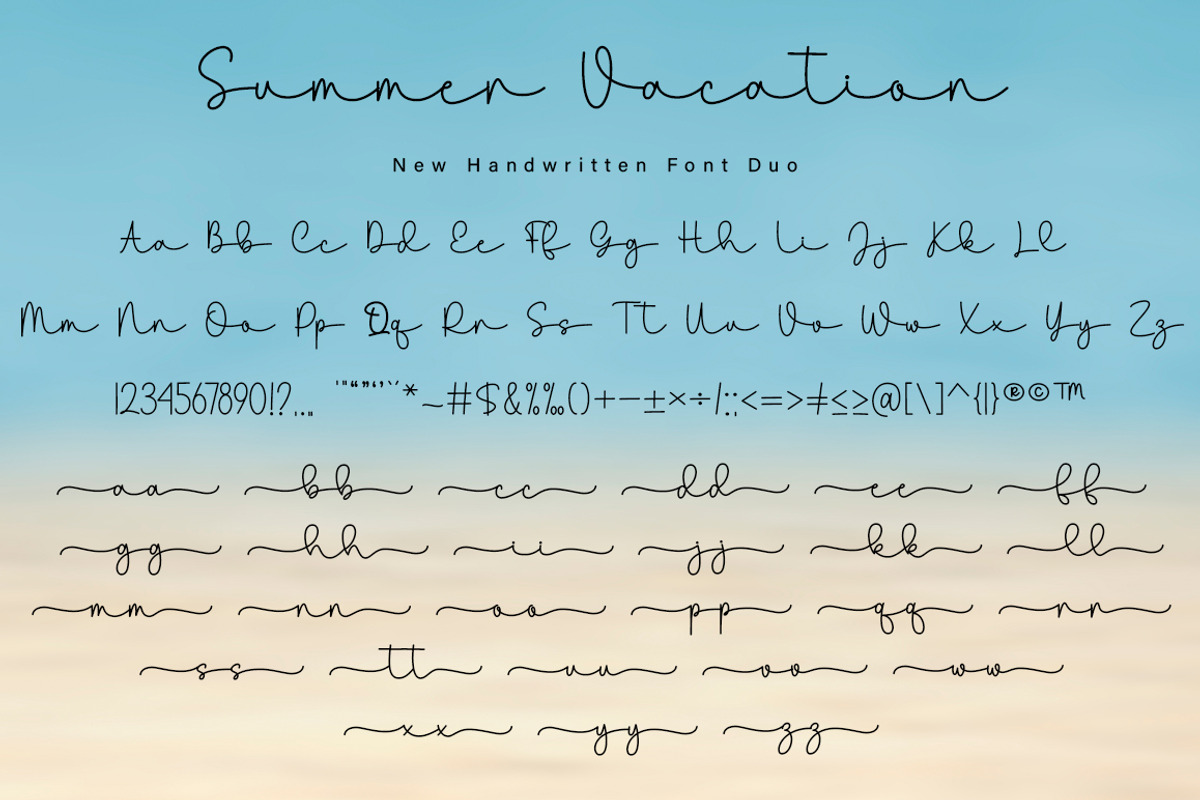 Summer Vacation
New Handwritten Font Duo
Aa Bb Cc Dd Ee Ff Gg Hh Ii Jj Kk Ll
Mm Nn Oo Pp Qq Rr Ss Tt Uu Vv Ww Xx Yy Zz
1234567890!?.,… '"“”‘’`´*~#$&%‰()+−±×÷/:;<=>≠≤≥@[\]^{|}®©™
aa bb cc dd ee ff
gg hh ii jj kk ll
mm nn oo pp qq rr
ss tt uu vv ww
xx yy zz